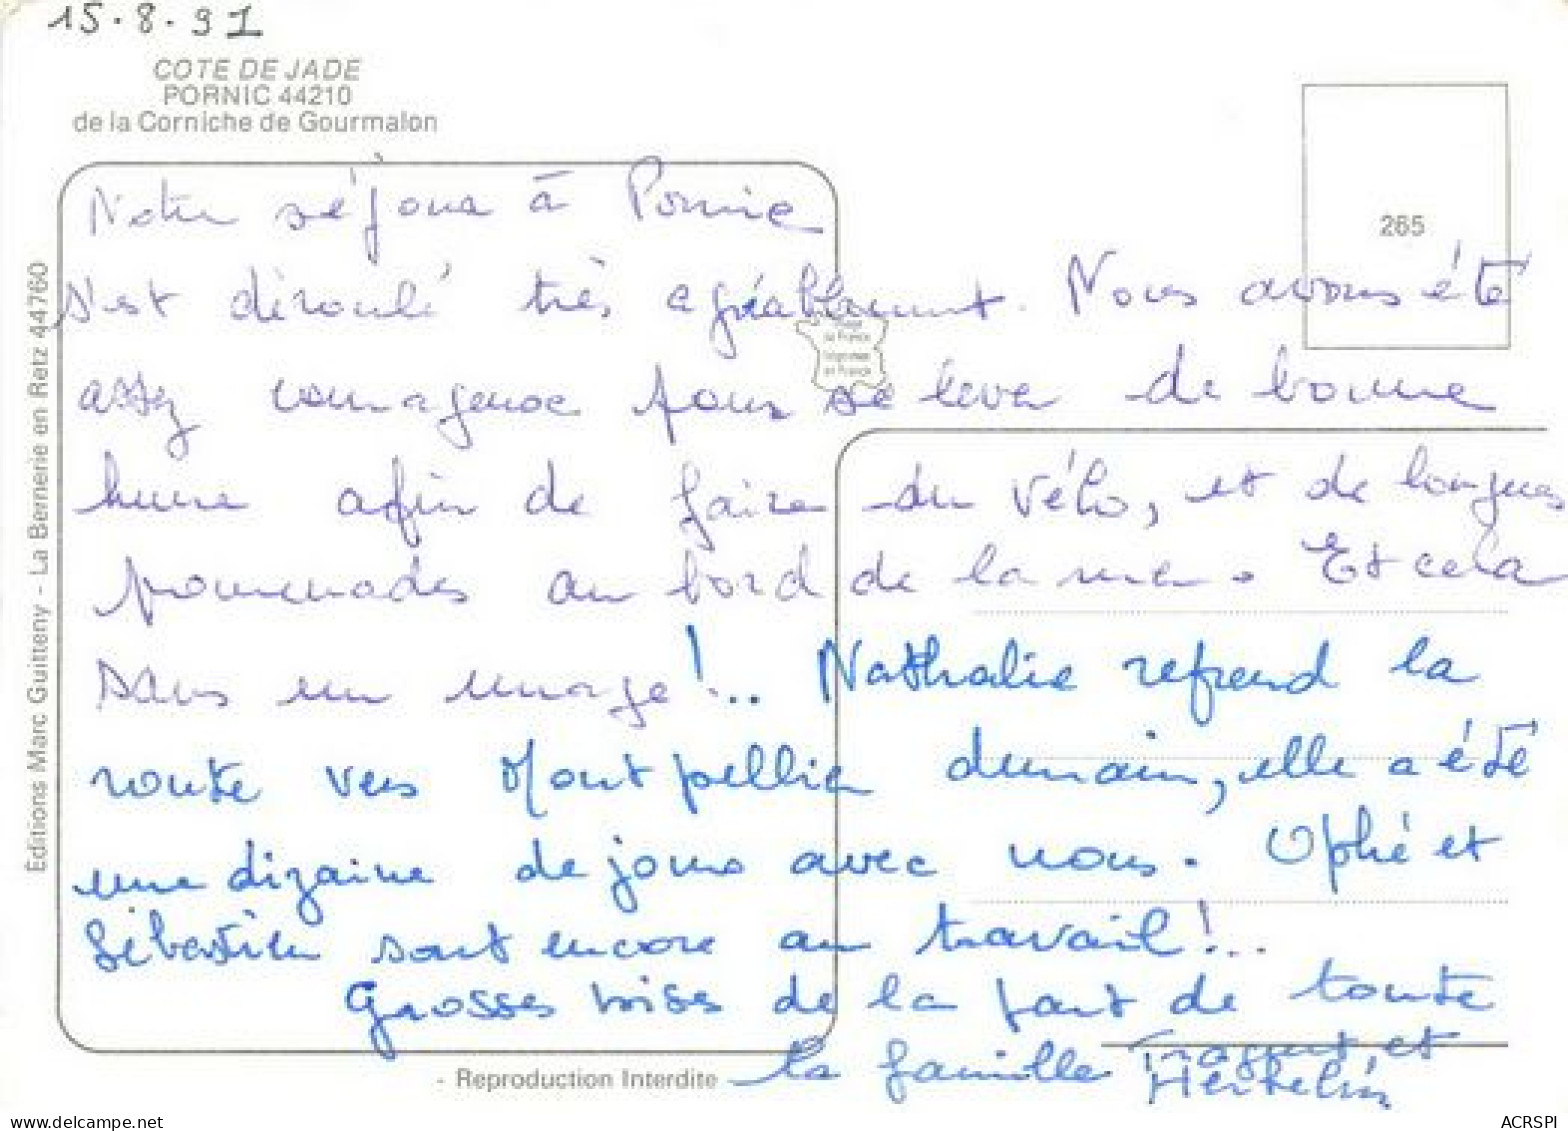 15.8.91
COTE DE JADE
PORNIC 44210
de la Corniche de Gourmalon
265
Editions Marc Guitteny - La Bernerie en Retz 44760
Notre séjour à Pornic
s'est déroulé très agréablement. Nous avons été
assez courageuse pour se lever de bonne
heure afin de faire du vélo, et de longues
promenades au bord de la mer. Et cela
sans un nuage!... Nathalie reprend la
route vers Montpellier demain, elle a été
une dizaine de jours avec nous. Ophé et
Sébastien sont encore au travail!...
Grosses bises de la part de toute
la famille et
- Reproduction Interdite
delcampe.net
ACRSPI